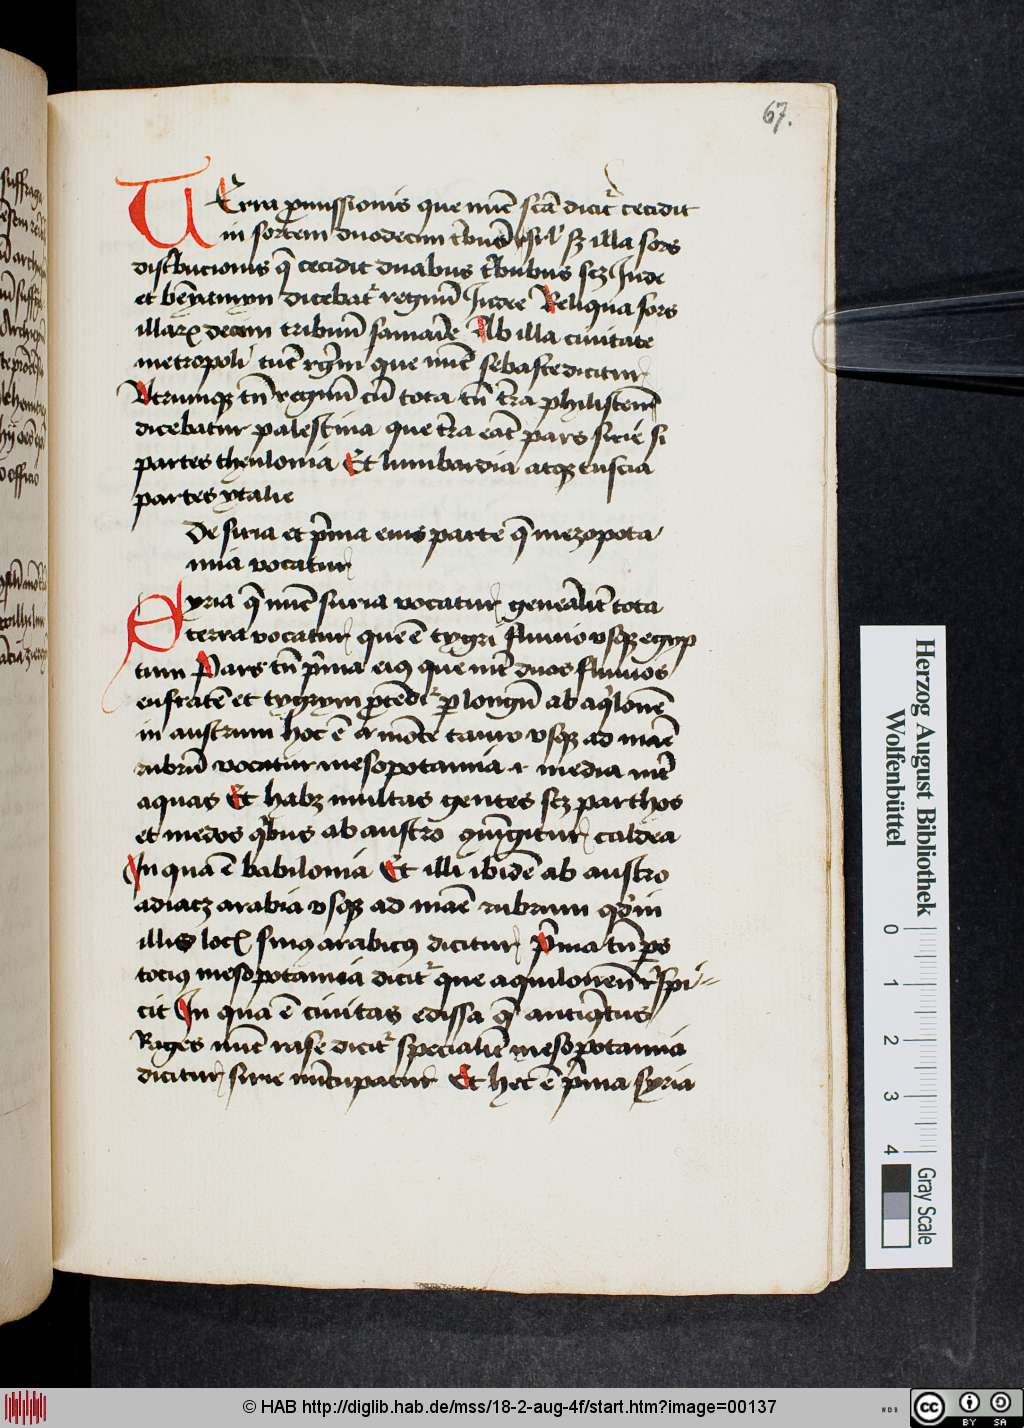 67.
TErra ꝓmissionis que nūc scā dicit᷑ cecidit
in sortem duodecim t̄bubꝫ isrl̄ sꝫ illa sors
distbucionis q̄ cecidit duabus t̄bubus scꝫ Jude
et beÿamyn dicebat᷑ regnū Judee Reliqua sors
illaꝝ decem tribuū samarie Ab illa ciuitate
metropoli que nūc sebaste dicitur
Vtrumqꝫ tn̄ regnū cū tota tn̄ t̄ra philisteoꝝ
dicebatur palestina que t̄ra eāt pars sirie si
partes theulonia Et lumbardia atqꝫ tuscia
partes ytalie
De siria et p̄ma eius parte q̄ mezopota
mia vocatur
Syria q̄ nūc suria vocatur gene᷑alit̄ tota
terra vocatur que ē tygri fluuio vsqꝫ egyp
tum Pars tn̄ p̄ma eiꝰ que int̄ duos fluuios
eufratē et tygrym ꝓtēdit᷑ ꝑ longū ab aq̇lonē
in austrum hoc ē a mōte tauro vsqꝫ ad maē
rubrū vocatur mesopotamia .i. media int̄
aquas Et habꝫ multas gentes scꝫ parthos
et medos q̇bus ab austro 9iūgitur caldea
In qua ē babilonia Et illi ibidē ab austro
adiacꝫ arabia vsqꝫ ad maē rubrum
illis locꝭ sinꝰ arabicꝰ dicitur p̄ma tn̄ ps
tociꝰ mesopotamia dicit᷑ que aquilonem rspi=
cit In qua ē ciuitas edissa q̄ antiq̇tus
Rages nūc rase dicit᷑ specialit̄ mesopotamia
dicitur sirie nūcupatur Et hec ē p̄ma syria
Herzog August Bibliothek
Wolfenbüttel
0 1 2 3 4
Gray Scale
© HAB http://diglib.hab.de/mss/18-2-aug-4f/start.htm?image=00137
WDB
cc BY SA